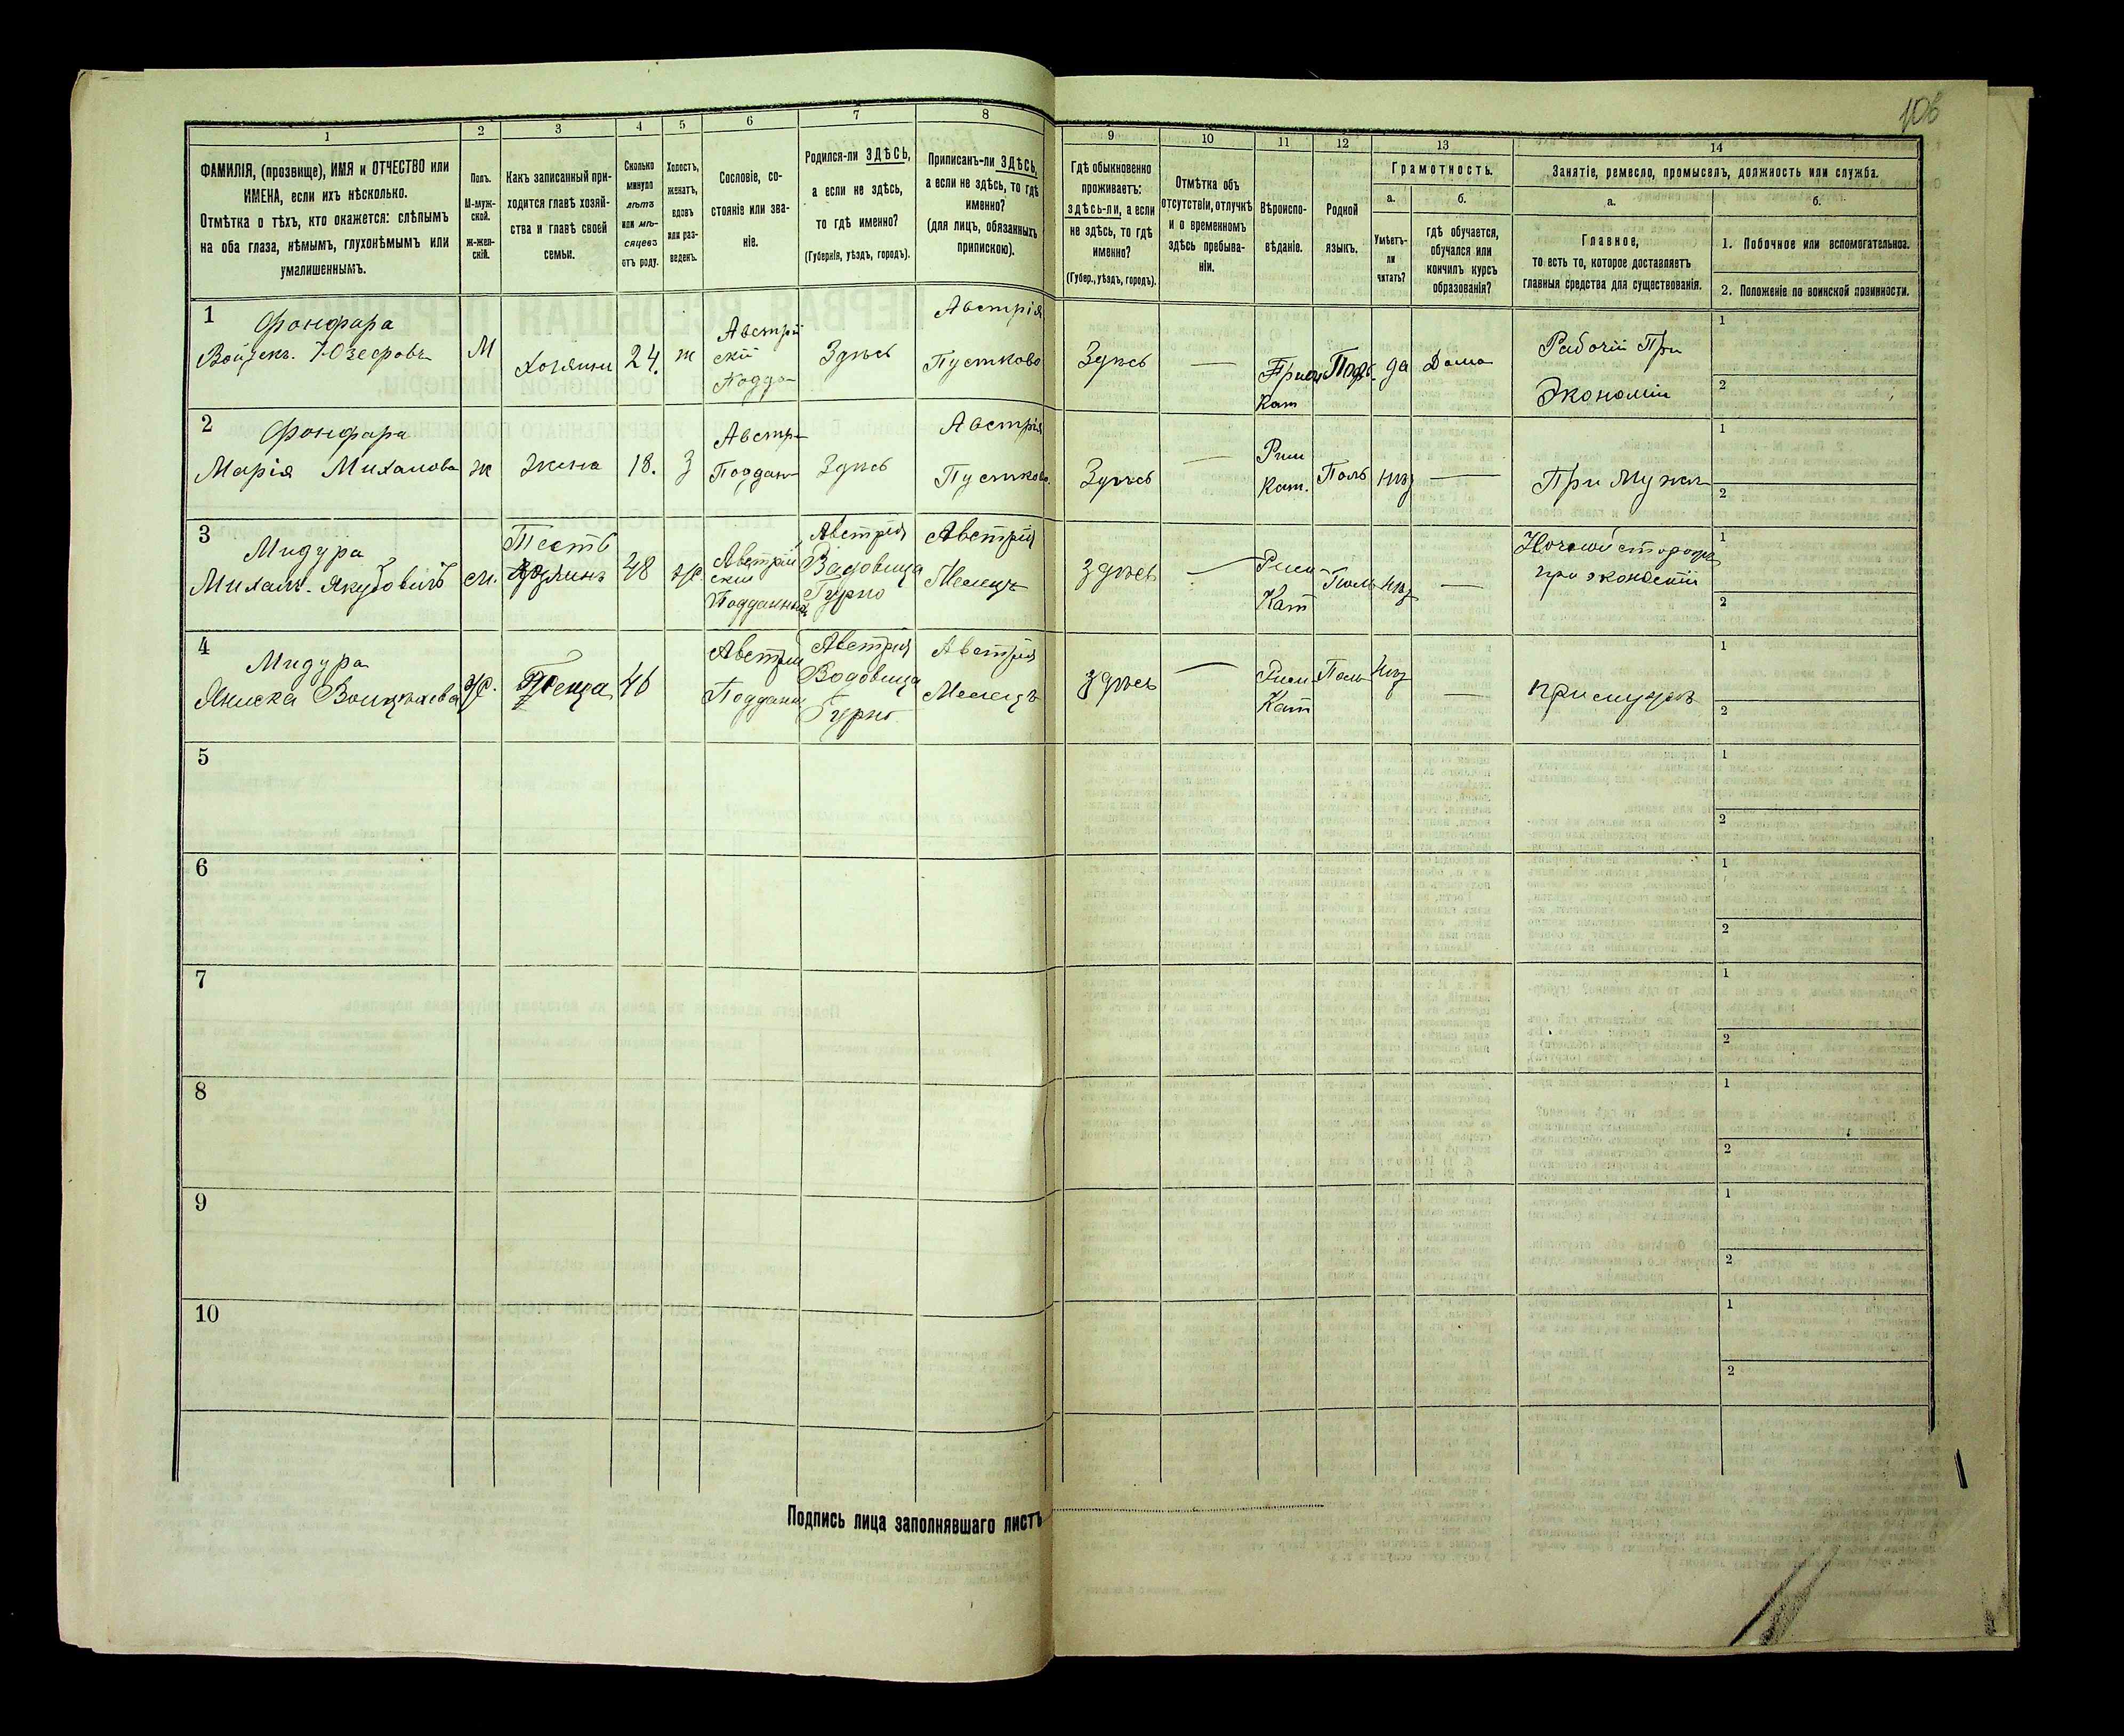 10б
1
2
3
4
5
6
7
8
9
10
11
12
13
14
ФАМИЛІЯ, (прозвище), ИМЯ и ОТЧЕСТВО или
ИМЕНА, если ихъ нѣсколько.
Отмѣтка о тѣхъ, кто окажется: слѣпымъ
на оба глаза, нѣмымъ, глухонѣмымъ или
умалишеннымъ.
Полъ.
М-муж-
ской.
ж-жен-
скій.
Какъ записанный при-
ходится главѣ хозяй-
ства и главѣ своей
семьи.
Сколько
минуло
лѣтъ
или мѣ-
сяцевъ
отъ роду.
Холостъ,
женатъ,
вдовъ
или раз-
веденъ.
Сословіе, со-
стояніе или зва-
ніе.
Родился-ли ЗДѢСЬ,
а если не здѣсь,
то гдѣ именно?
(Губернія, уѣздъ, городъ).
Приписанъ-ли ЗДѢСЬ,
а если не здѣсь, то гдѣ
именно?
(для лицъ, обязанныхъ
припискою).
Гдѣ обыкновенно
проживаетъ:
здѣсь-ли, а если
не здѣсь, то гдѣ
именно?
(Губер., уѣздъ, городъ).
Отмѣтка объ
отсутствіи, отлучкѣ
и о временномъ
здѣсь пребыва-
ніи.
Вѣроиспо-
вѣданіе.
Родной
языкъ.
Грамотность.
а.
Умѣетъ-
ли
читать?
б.
гдѣ обучается,
обучался или
кончилъ курсъ
образованія?
Занятіе, ремесло, промыселъ, должность или служба.
а.
Главное,
то есть то, которое доставляетъ
главныя средства для существованія.
б.
1. Побочное или вспомогательное.
2. Положеніе по воинской повинности.
1
Фонфара
Войцех. Юзефовъ
М
Хозяин
24.
ж
Австрій
скій
Поддо-
Здѣсь
Австрія
Пустково
Здѣсь
—
Кат
да
Дома
Рабочій При
Экономіи
1
2
2
Фонфара
Марія Михалова
ж
Жена
18.
З
Австр-
Поддан-
Здѣсь
Австрія
Пустково.
Здѣсь
—
Рим
Кат.
Поль
—
При Мужѣ
1
2
3
Мидура
Михалъ. Якубовичъ
М.
Тесть
48
Австрій
скій
Подданный
Австрія
Вадовица
Гурно
Австрія
Мелецъ
здѣсь
—
Рим-
Кат
Поль
—
Ночной сторожъ
при экономіи
1
2
4
Мидура
46
Австрій
Поддани
Австрія
Водовица
Гурно
Австрія
Мелецъ
здѣсь
—
Рим
Кат
Поль
—
при мужѣ
1
2
5
1
2
6
1
2
7
1
2
8
1
2
9
1
2
10
1
2
Подпись лица заполнявшаго листъ